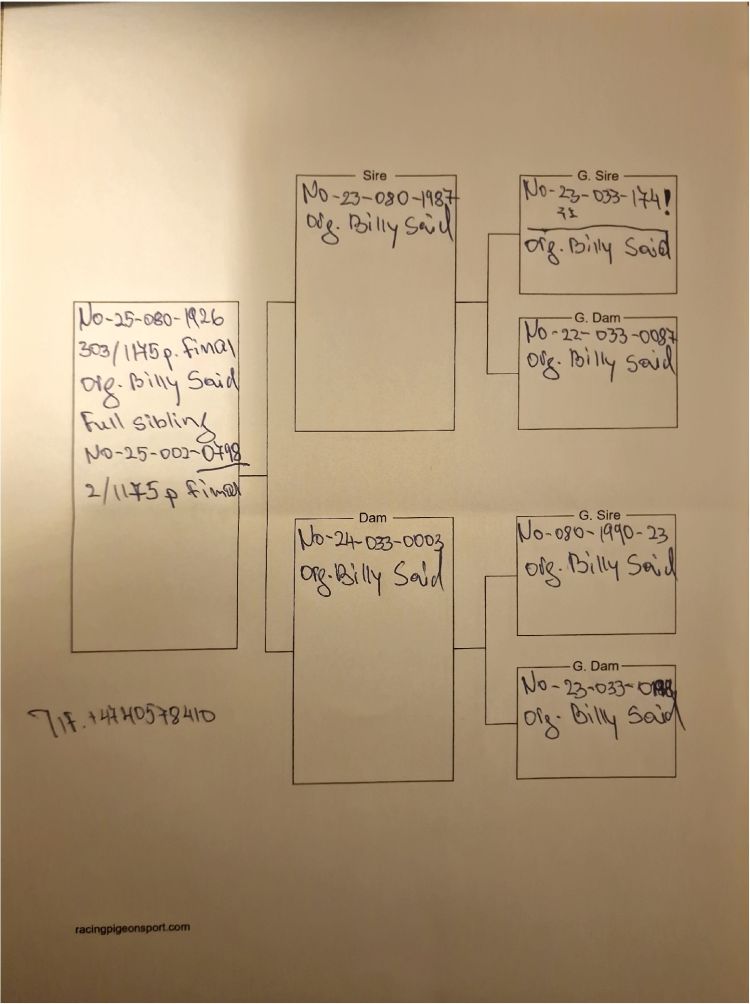 Sire
No-23-080-1987
Org. Billy Said
G. Sire
No-23-033-174!
Org. Billy Said
G. Dam
No-22-033-0087
Org. Billy Said
No-25-080-1926
303/1175 p. final
Org. Billy Said
Full sibling
No-25-002-0798
2/1175 p final
Dam
No-24-033-0003
Org. Billy Said
G. Sire
No-080-1990-23
Org. Billy Said
G. Dam
No-23-033-
Org. Billy Said
Tlf. +4740578410
racingpigeonsport.com